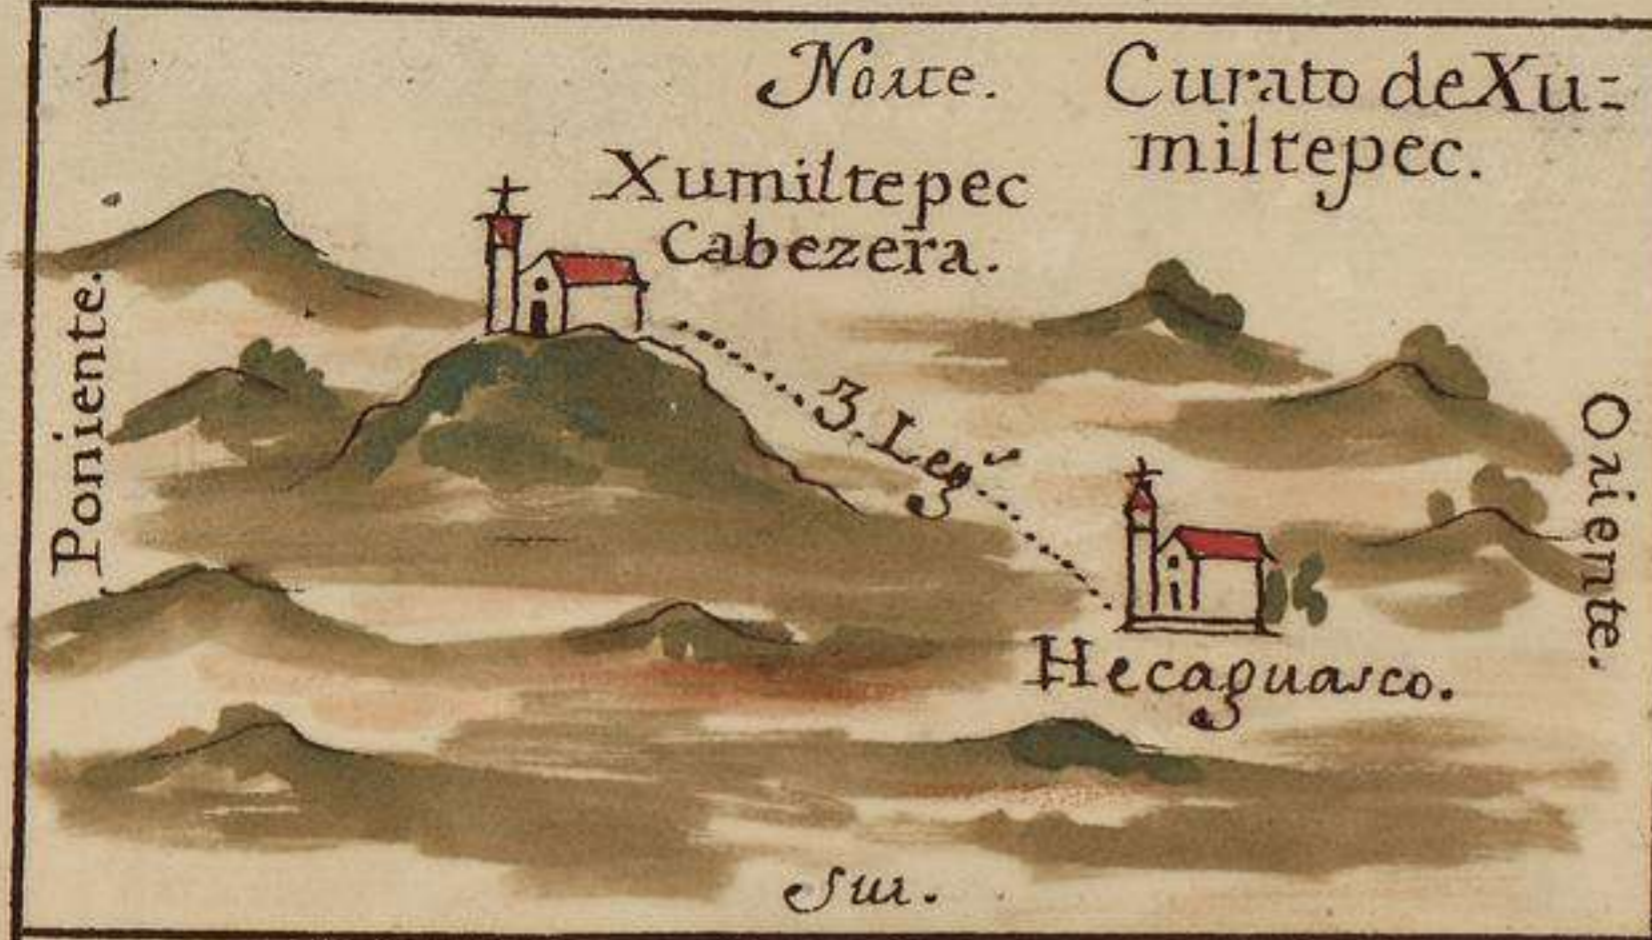 1
Norte.
Curato de Xu=
miltepec.
Xumiltepec
Cabezera.
Poniente.
3. Legs
Oriente.
Hecaguasco.
Sur.